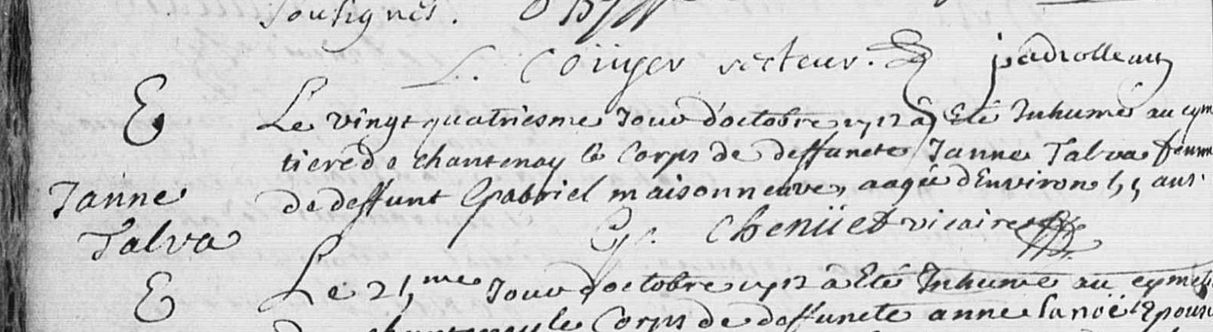 soussignés.
L. Coüyer recteur. padiolleau
E Le vingt quatriesme Jour d'octobre 1712 a Eté Inhumé au cym
tiere de chantenay le Corps de deffuncte Janne Talva femme
Janne de deffunt Gabriel maisonneuve, aagée d'Environ 55 ans.
Talva G. Chenüet vicaire
E Le 25me Jour d'octobre 1712 a Eté Inhumé au cymet
de chantenay le Corps de deffuncte anne Epouse